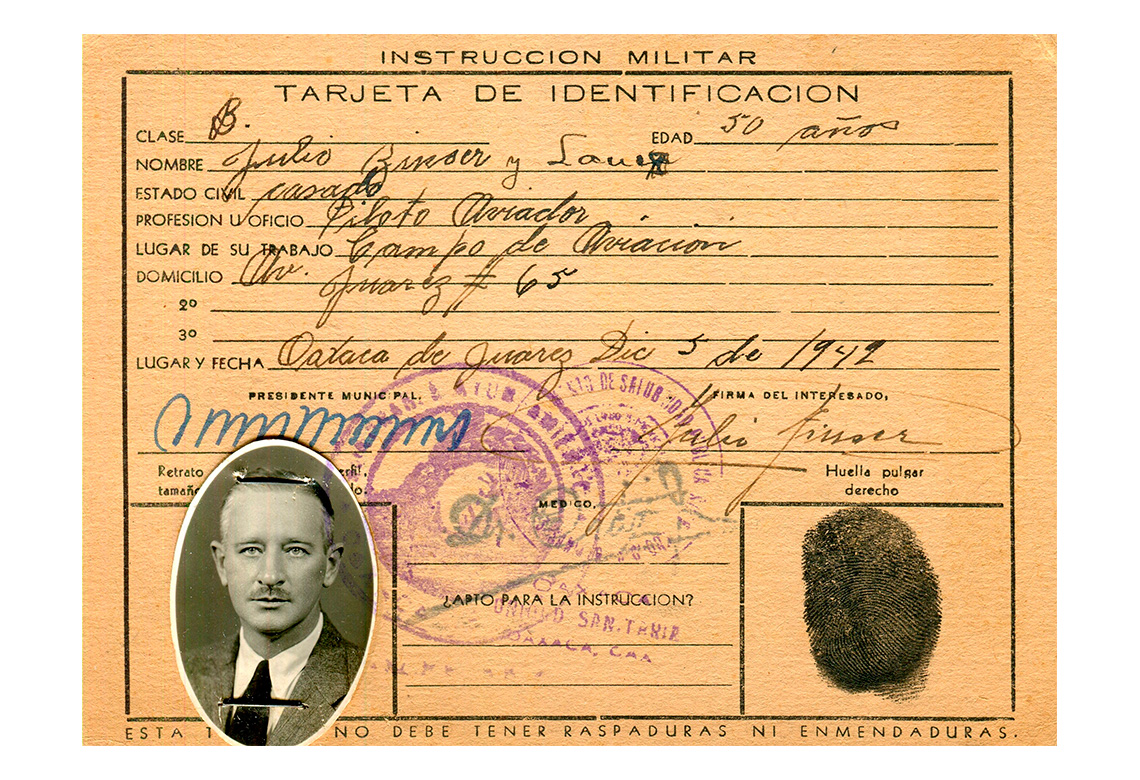 INSTRUCCION MILITAR
TARJETA DE IDENTIFICACION
CLASE B. EDAD 50 años
NOMBRE Julio y
ESTADO CIVIL casado
PROFESION U OFICIO Piloto Aviador
LUGAR DE SU TRABAJO Campo de Aviacion
DOMICILIO Av. Juarez # 65
2º
3º
LUGAR Y FECHA Oaxaca de Juarez Dic 5 de 1942
PRESIDENTE MUNICIPAL, FIRMA DEL INTERESADO,
Julio
Retrato
tamaño
Huella pulgar
derecho
MEDICO,
¿APTO PARA LA INSTRUCCION?
UNIDAD SANITARIA
OAXACA, OAX
ESTA NO DEBE TENER RASPADURAS NI ENMENDADURAS.